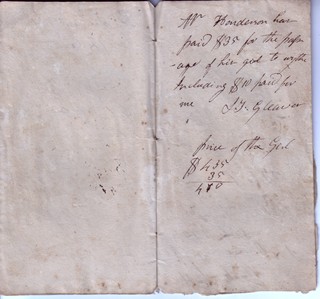 Mr Henderson has
paid $35 for the pass-
age of his girl to
Including $10 paid for
me J. F. Eleaver
price of the Gerl
$ 435
35
470